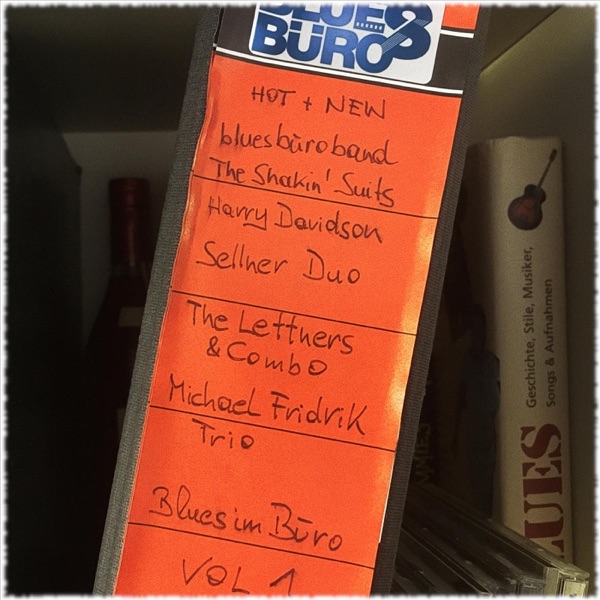 BLUES
BÜRO
HOT + NEW
bluesbüroband
The Shakin' Suits
Harry Davidson
Sellner Duo
The Lettners
& Combo
Michael Fridrik
Trio
Blues im Büro
VOL 1
Geschichte, Stile, Musiker,
Songs & Aufnahmen
LUES